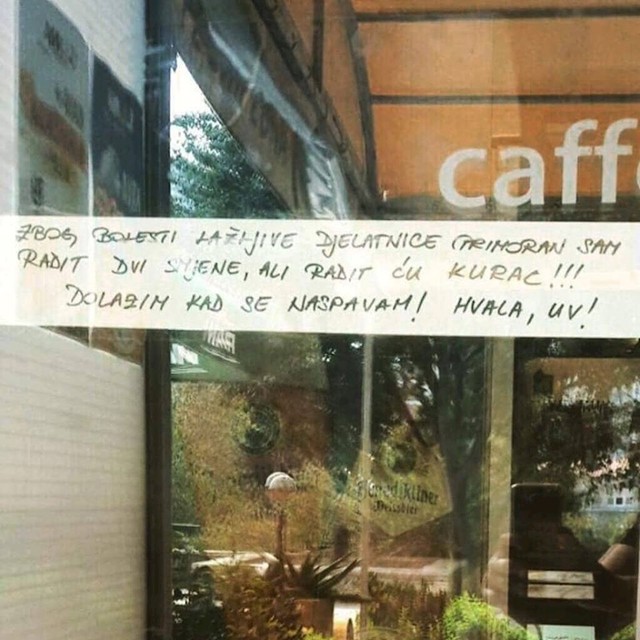 caffe
ZBOG BOLESTI LAŽLJIVE DJELATNICE PRIMORAN SAM
RADIT DVI SMJENE, ALI RADIT ĆU KURAC!!!
DOLAZIM KAD SE NASPAVAM! HVALA, UV!
Benediktiner
Weissbier